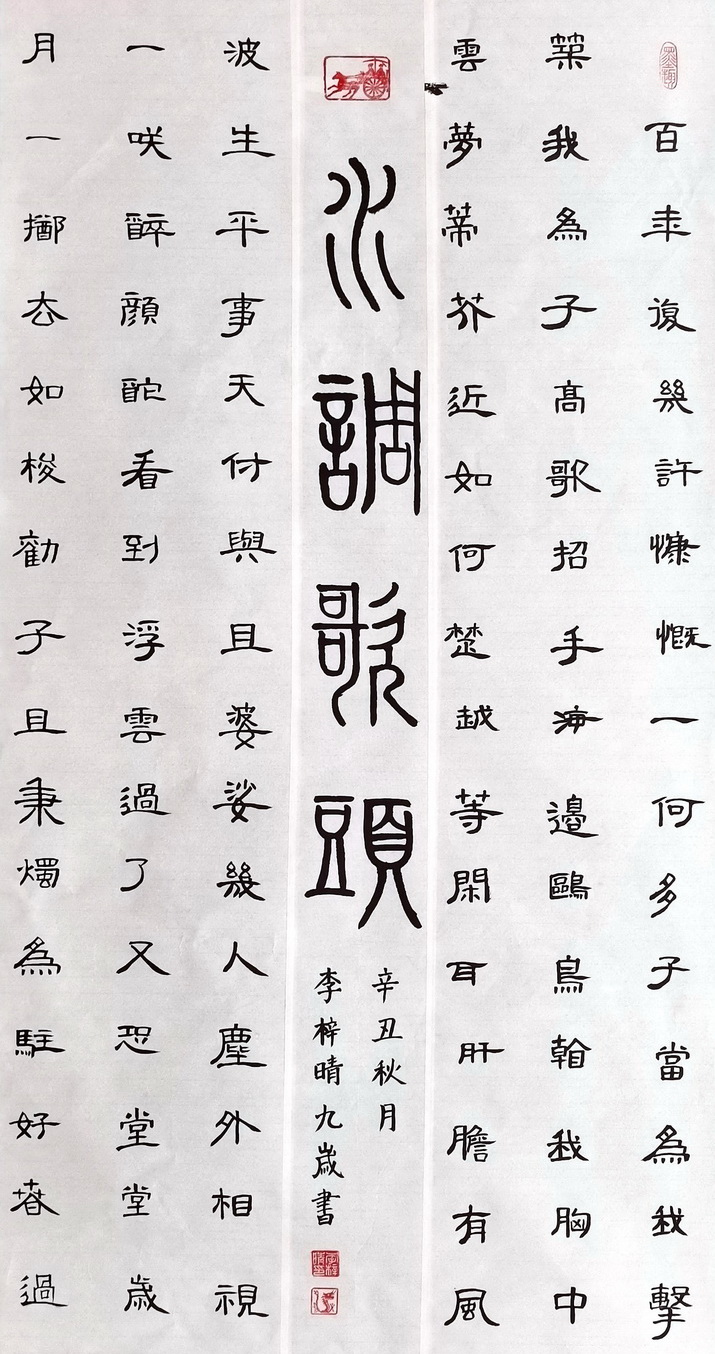 百年復幾許慷慨一何多子當為我擊
築我為子高歌招手海邊鷗鳥看我胸中
雲夢蒂芥近如何楚越等閑耳肝膽有風
水調歌頭
辛丑秋月
李梓晴九歲書
波生平事天付與且婆娑幾人塵外相視
一咲醉顏酡看到浮雲過了又恐堂堂歲
月一擲去如梭勸子且秉燭為駐好春過